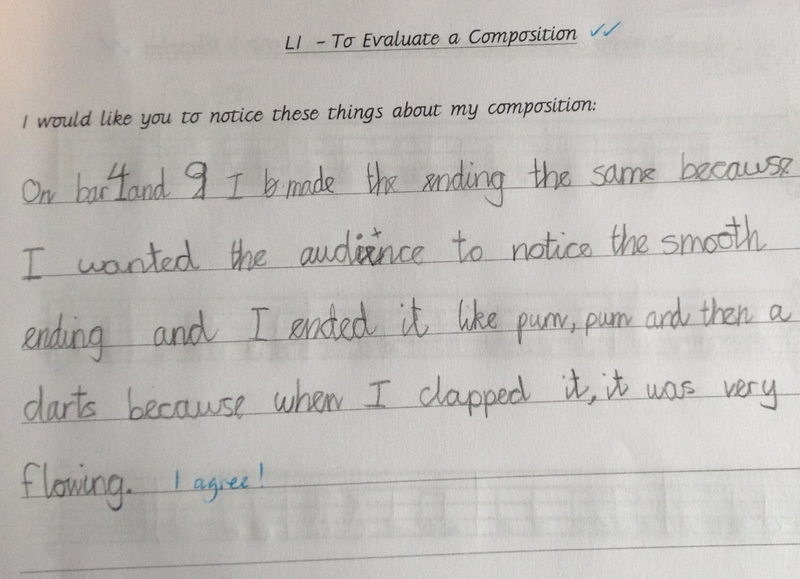 LI - To Evaluate a Composition ✓✓
I would like you to notice these things about my composition:
On bar 4 and 9 I made the ending the same because
I wanted the audience to notice the smooth
ending and I ended it like pum, pum and then a
darts because when I clapped it, it was very
flowing. I agree!